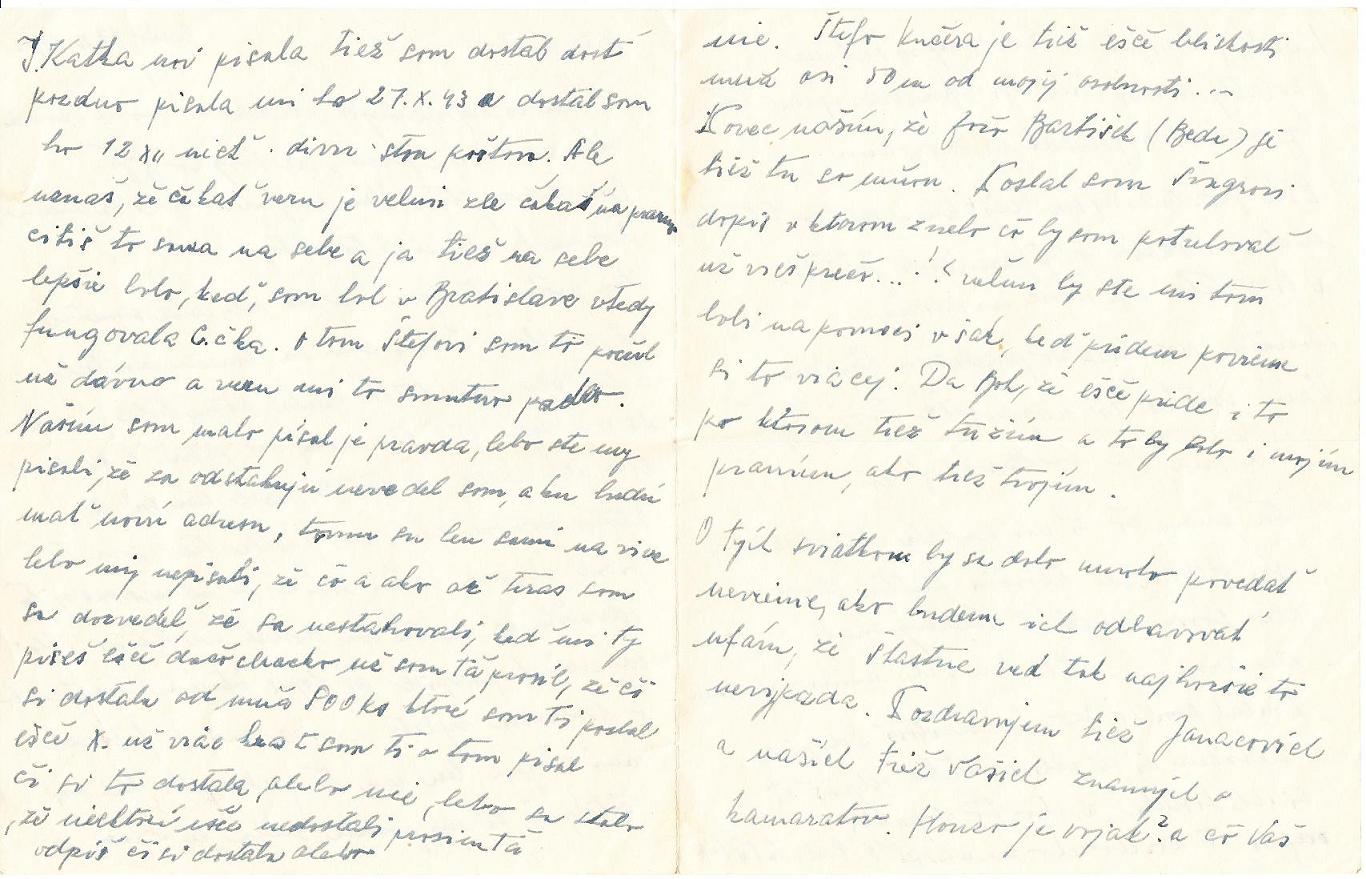 J. Katka mi písala tiež som dostal dosť
pozdno písala mi ho 27.X.43 a dostal som
ho 12 XII nieč divu stou poštou. Ale
uznáš, že čakať veru je velmi zle čakať na pravu
cítiš to sama na sebe a ja tiež na sebe
lepšie bolo, keď som bol v Bratislave vtedy
fungovala O tom Štefovi som to počul
už dávno a veru mi to smutno padlo.
Naším som malo písal je pravda, lebo ste my
písali, že sa odstahuju nevedel som, aku budú
mať novú adresu, tomu su len sami na vine
lebo mi nepísali, že čo a ako až teras som
sa dozvedel, že sa nestahovali, keď mi ty
píšeš ešče dačo už som ťa prosil, že či
si dostala od mňa 800 ks ktoré som ti poslal
ešče X. už viac krat som ti o tom písal
či si to dostala, alebo nie, lebo sa stalo
že niektorí ešče nedostali prosím ťa
odpíš či si dostala alebo
nie. Štefo Kučera je tiež ešče blískosti
mňa asi 50 m od mojej osobnosti...
Povec našim, že Jožo Bartišek (Beďu) je
tiež tu so mňou. Poslal som
dopis v ktorom znelo čo by som potreboval
už vieš preč...! verím by ste mi tom
boli na pomoci však, keď prídem povieme
si to viacej. Da Boh, že ešče príde i to
po ktorom tiež túžím a to by bolo i mojím
pranim, ako tiež tvojím.
O tých sviatkom by sa dalo mnoho povedať
nevieme, ako budeme ich odbavovať
ufám, že šťastne veď tak najhoršie to
nevypada. Pozdravujem tiež Janacovích
a našich tiež Vašich znamých a
kamaratov. Honzo je vojak? a čo Váš